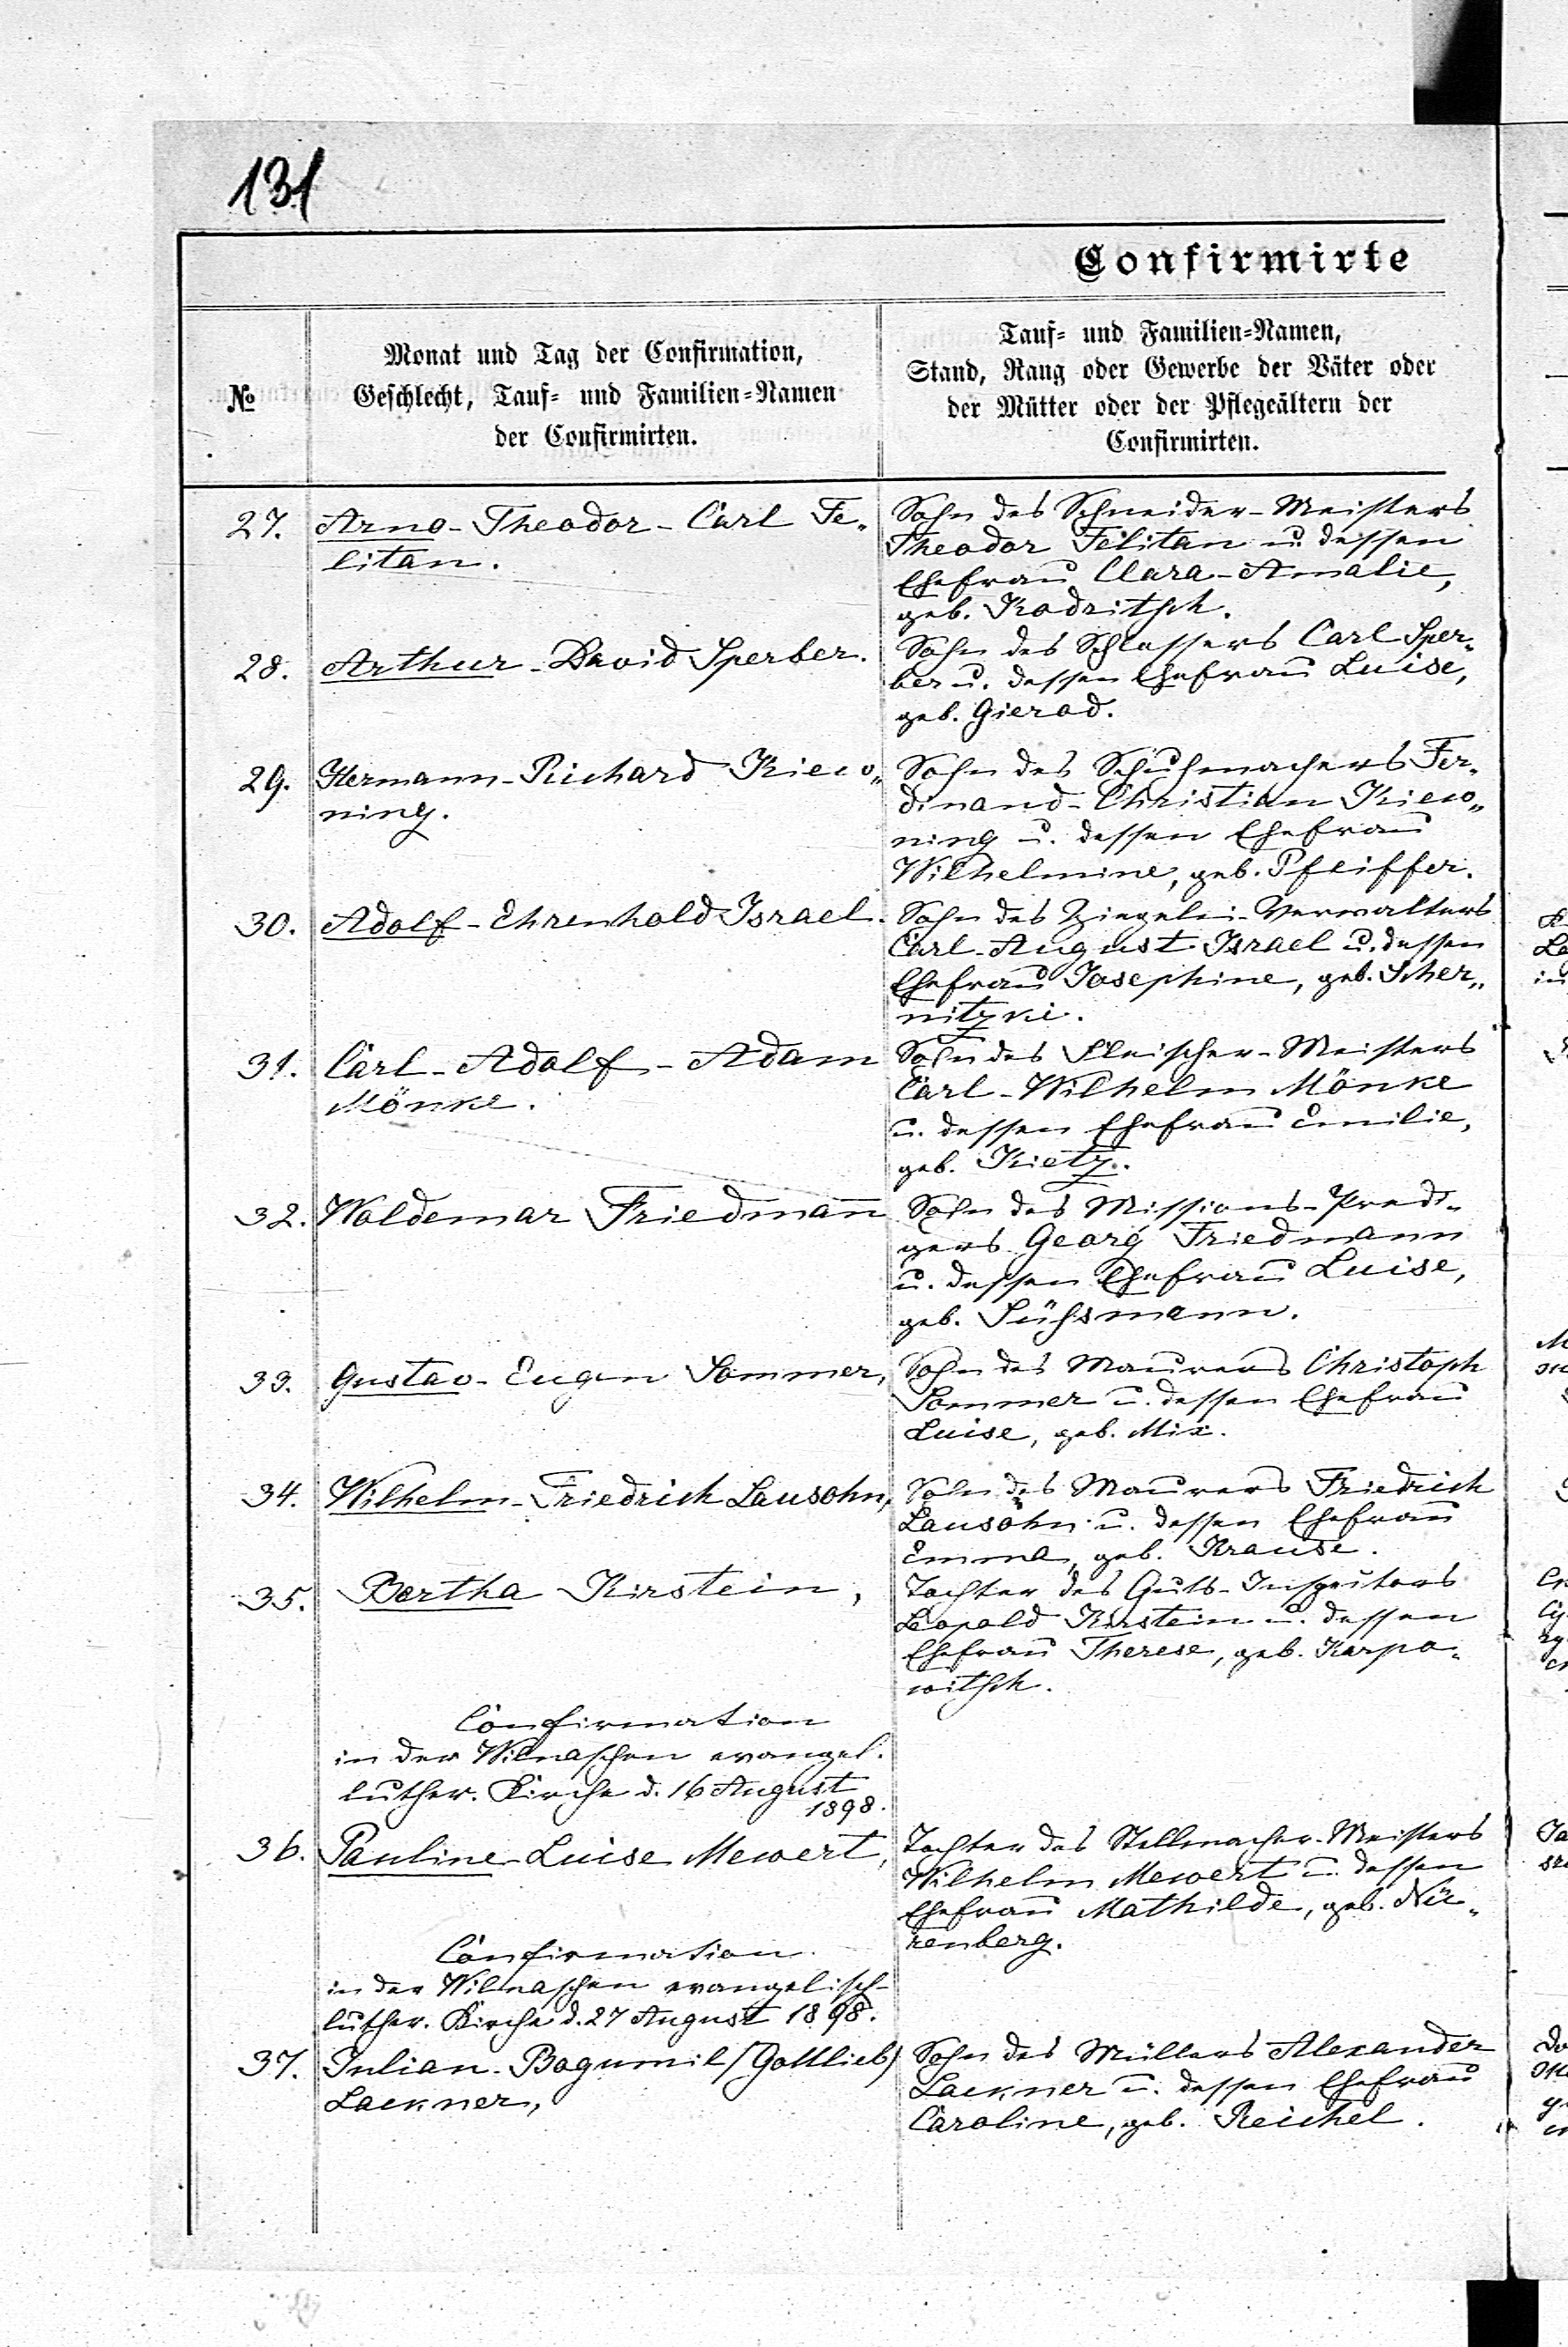 131
Confirmirte
№
Monat und Tag der Confirmation,
Geschlecht, Tauf- und Familien-Namen
der Confirmirten.
Tauf- und Familien-Namen,
Stand, Rang oder Gewerbe der Väter oder
der Mütter oder der Pflegeältern der
Confirmirten.
27. Arno-Theodor-Carl Fe-
litan.
Sohn des Schneider-Meisters
Theodor Felitan u. dessen
Ehefrau Clara-Amalie,
geb. Kodritsch.
28. Arthur-David Sperber.
Sohn des Schlossers Carl Sper-
ber u. dessen Ehefrau Luise,
geb. Gierod.
29. Hermann-Richard Kiew-
ning.
Sohn des Schuhmachers Fer-
dinand-Christian Kiew-
ning u. dessen Ehefrau
Wilhelmine, geb. Pfeiffer.
30. Adolf-Ehrenhold Israel.
Sohn des Ziegelei-Verwalters
Carl-August Israel u. dessen
Ehefrau Josephine, geb. Scher-
nitzki.
31. Carl-Adolf-Adam
Mönke.
Sohn des Fleischer-Meisters
Carl-Wilhelm Mönke
u. dessen Ehefrau Emilie,
geb. Kietz.
32. Woldemar Friedmañ
Sohn des Missions-Predi-
gers Georg Friedmann
u. dessen Ehefrau Luise,
geb. Sühsmann.
33. Gustav-Eugen Sommer,
Sohn des Maurers Christoph
Sommer u. dessen Ehefrau
Luise, geb. Mix.
34. Wilhelm-Friedrich Lausohn,
Sohn des Maurers Friedrich
Lausohn u. dessen Ehefrau
Emma, geb. Krause.
35. Bertha Kirstein,
Tochter des Guts-Inspectors
Leopold Kirstein u. dessen
Ehefrau Therese, geb. Karpo-
witsch.
Confirmation
in der Wilnaschen evangel.
luther. Kirche d. 16 August
1898.
36. Pauline-Luise Mewert,
Tochter des Stellmacher-Meisters
Wilhelm Mewert u. dessen
Ehefrau Mathilde, geb. Nü-
renberg.
Confirmation
in der Wilnaschen evangelisch-
luther. Kirche d. 27 August 1898.
37. Julian-Bogumil (Gottlieb)
Lackner,
Sohn des Müllers Alexander
Lackner u. dessen Ehefrau
Caroline, geb. Reichel.